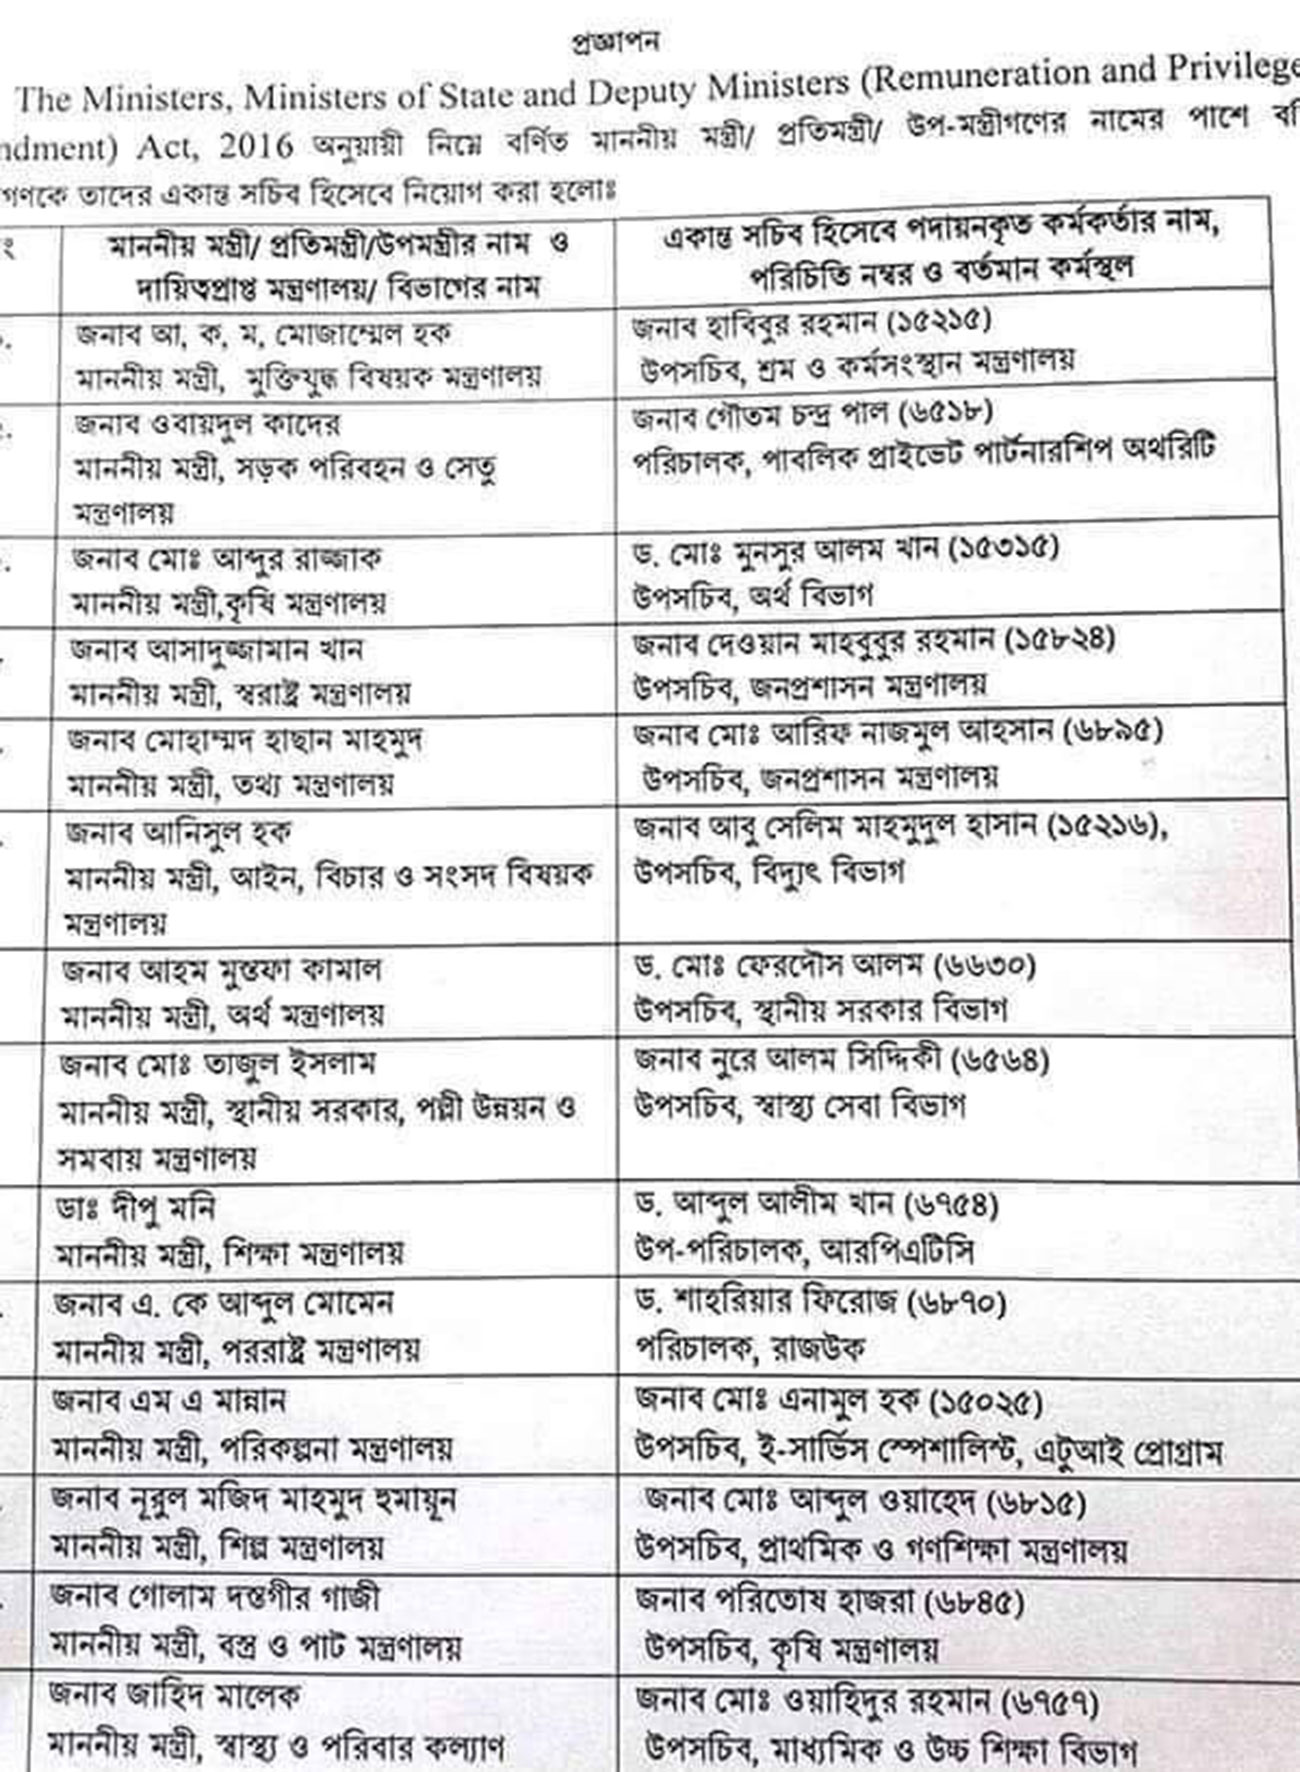 প্রজ্ঞাপন
The Ministers, Ministers of State and Deputy Ministers (Remuneration and Privilege
ndment) Act, 2016 অনুযায়ী নিম্নে বর্ণিত মাননীয় মন্ত্রী/ প্রতিমন্ত্রী/ উপ-মন্ত্রীগণের নামের পাশে
গণকে তাদের একান্ত সচিব হিসেবে নিয়োগ করা হলোঃ
মাননীয় মন্ত্রী/ প্রতিমন্ত্রী/উপমন্ত্রীর নাম ও
দায়িত্বপ্রাপ্ত মন্ত্রণালয়/ বিভাগের নাম
একান্ত সচিব হিসেবে পদায়নকৃত কর্মকর্তার নাম,
পরিচিতি নম্বর ও বর্তমান কর্মস্থল
জনাব আ, ক, ম, মোজাম্মেল হক
মাননীয় মন্ত্রী, মুক্তিযুদ্ধ বিষয়ক মন্ত্রণালয়
জনাব হাবিবুর রহমান (১৫২১৫)
উপসচিব, শ্রম ও কর্মসংস্থান মন্ত্রণালয়
জনাব ওবায়দুল কাদের
মাননীয় মন্ত্রী, সড়ক পরিবহন ও সেতু
মন্ত্রণালয়
জনাব গৌতম চন্দ্র পাল (৬৫১৮)
পরিচালক, পাবলিক প্রাইভেট পার্টনারশিপ অথরিটি
জনাব মোঃ আব্দুর রাজ্জাক
মাননীয় মন্ত্রী,কৃষি মন্ত্রণালয়
ড. মোঃ মুনসুর আলম খান (১৫৩১৫)
উপসচিব, অর্থ বিভাগ
জনাব আসাদুজ্জামান খান
মাননীয় মন্ত্রী, স্বরাষ্ট্র মন্ত্রণালয়
জনাব দেওয়ান মাহবুবুর রহমান (১৫৮২৪)
উপসচিব, জনপ্রশাসন মন্ত্রণালয়
জনাব মোহাম্মদ হাছান মাহমুদ
মাননীয় মন্ত্রী, তথ্য মন্ত্রণালয়
জনাব মোঃ আরিফ নাজমুল আহসান (৬৮৯৫)
উপসচিব, জনপ্রশাসন মন্ত্রণালয়
জনাব আনিসুল হক
মাননীয় মন্ত্রী, আইন, বিচার ও সংসদ বিষয়ক
মন্ত্রণালয়
জনাব আবু সেলিম মাহমুদুল হাসান (১৫২১৬),
উপসচিব, বিদ্যুৎ বিভাগ
জনাব আহম মুস্তফা কামাল
মাননীয় মন্ত্রী, অর্থ মন্ত্রণালয়
ড. মোঃ ফেরদৌস আলম (৬৬৩০)
উপসচিব, স্থানীয় সরকার বিভাগ
জনাব মোঃ তাজুল ইসলাম
মাননীয় মন্ত্রী, স্থানীয় সরকার, পল্লী উন্নয়ন ও
সমবায় মন্ত্রণালয়
জনাব নুরে আলম সিদ্দিকী (৬৫৬৪)
উপসচিব, স্বাস্থ্য সেবা বিভাগ
ডাঃ দীপু মনি
মাননীয় মন্ত্রী, শিক্ষা মন্ত্রণালয়
ড. আব্দুল আলীম খান (৬৭৫৪)
উপ-পরিচালক, আরপিএটিসি
জনাব এ. কে আব্দুল মোমেন
মাননীয় মন্ত্রী, পররাষ্ট্র মন্ত্রণালয়
ড. শাহরিয়ার ফিরোজ (৬৮৭০)
পরিচালক, রাজউক
জনাব এম এ মান্নান
মাননীয় মন্ত্রী, পরিকল্পনা মন্ত্রণালয়
জনাব মোঃ এনামুল হক (১৫০২৫)
উপসচিব, ই-সার্ভিস স্পেশালিস্ট, এটুআই প্রোগ্রাম
জনাব নূরুল মজিদ মাহমুদ হুমায়ূন
মাননীয় মন্ত্রী, শিল্প মন্ত্রণালয়
জনাব মোঃ আব্দুল ওয়াহেদ (৬৮১৫)
উপসচিব, প্রাথমিক ও গণশিক্ষা মন্ত্রণালয়
জনাব গোলাম দস্তগীর গাজী
মাননীয় মন্ত্রী, বস্ত্র ও পাট মন্ত্রণালয়
জনাব পরিতোষ হাজরা (৬৮৪৫)
উপসচিব, কৃষি মন্ত্রণালয়
জনাব জাহিদ মালেক
মাননীয় মন্ত্রী, স্বাস্থ্য ও পরিবার কল্যাণ
জনাব মোঃ ওয়াহিদুর রহমান (৬৭৫৭)
উপসচিব, মাধ্যমিক ও উচ্চ শিক্ষা বিভাগ